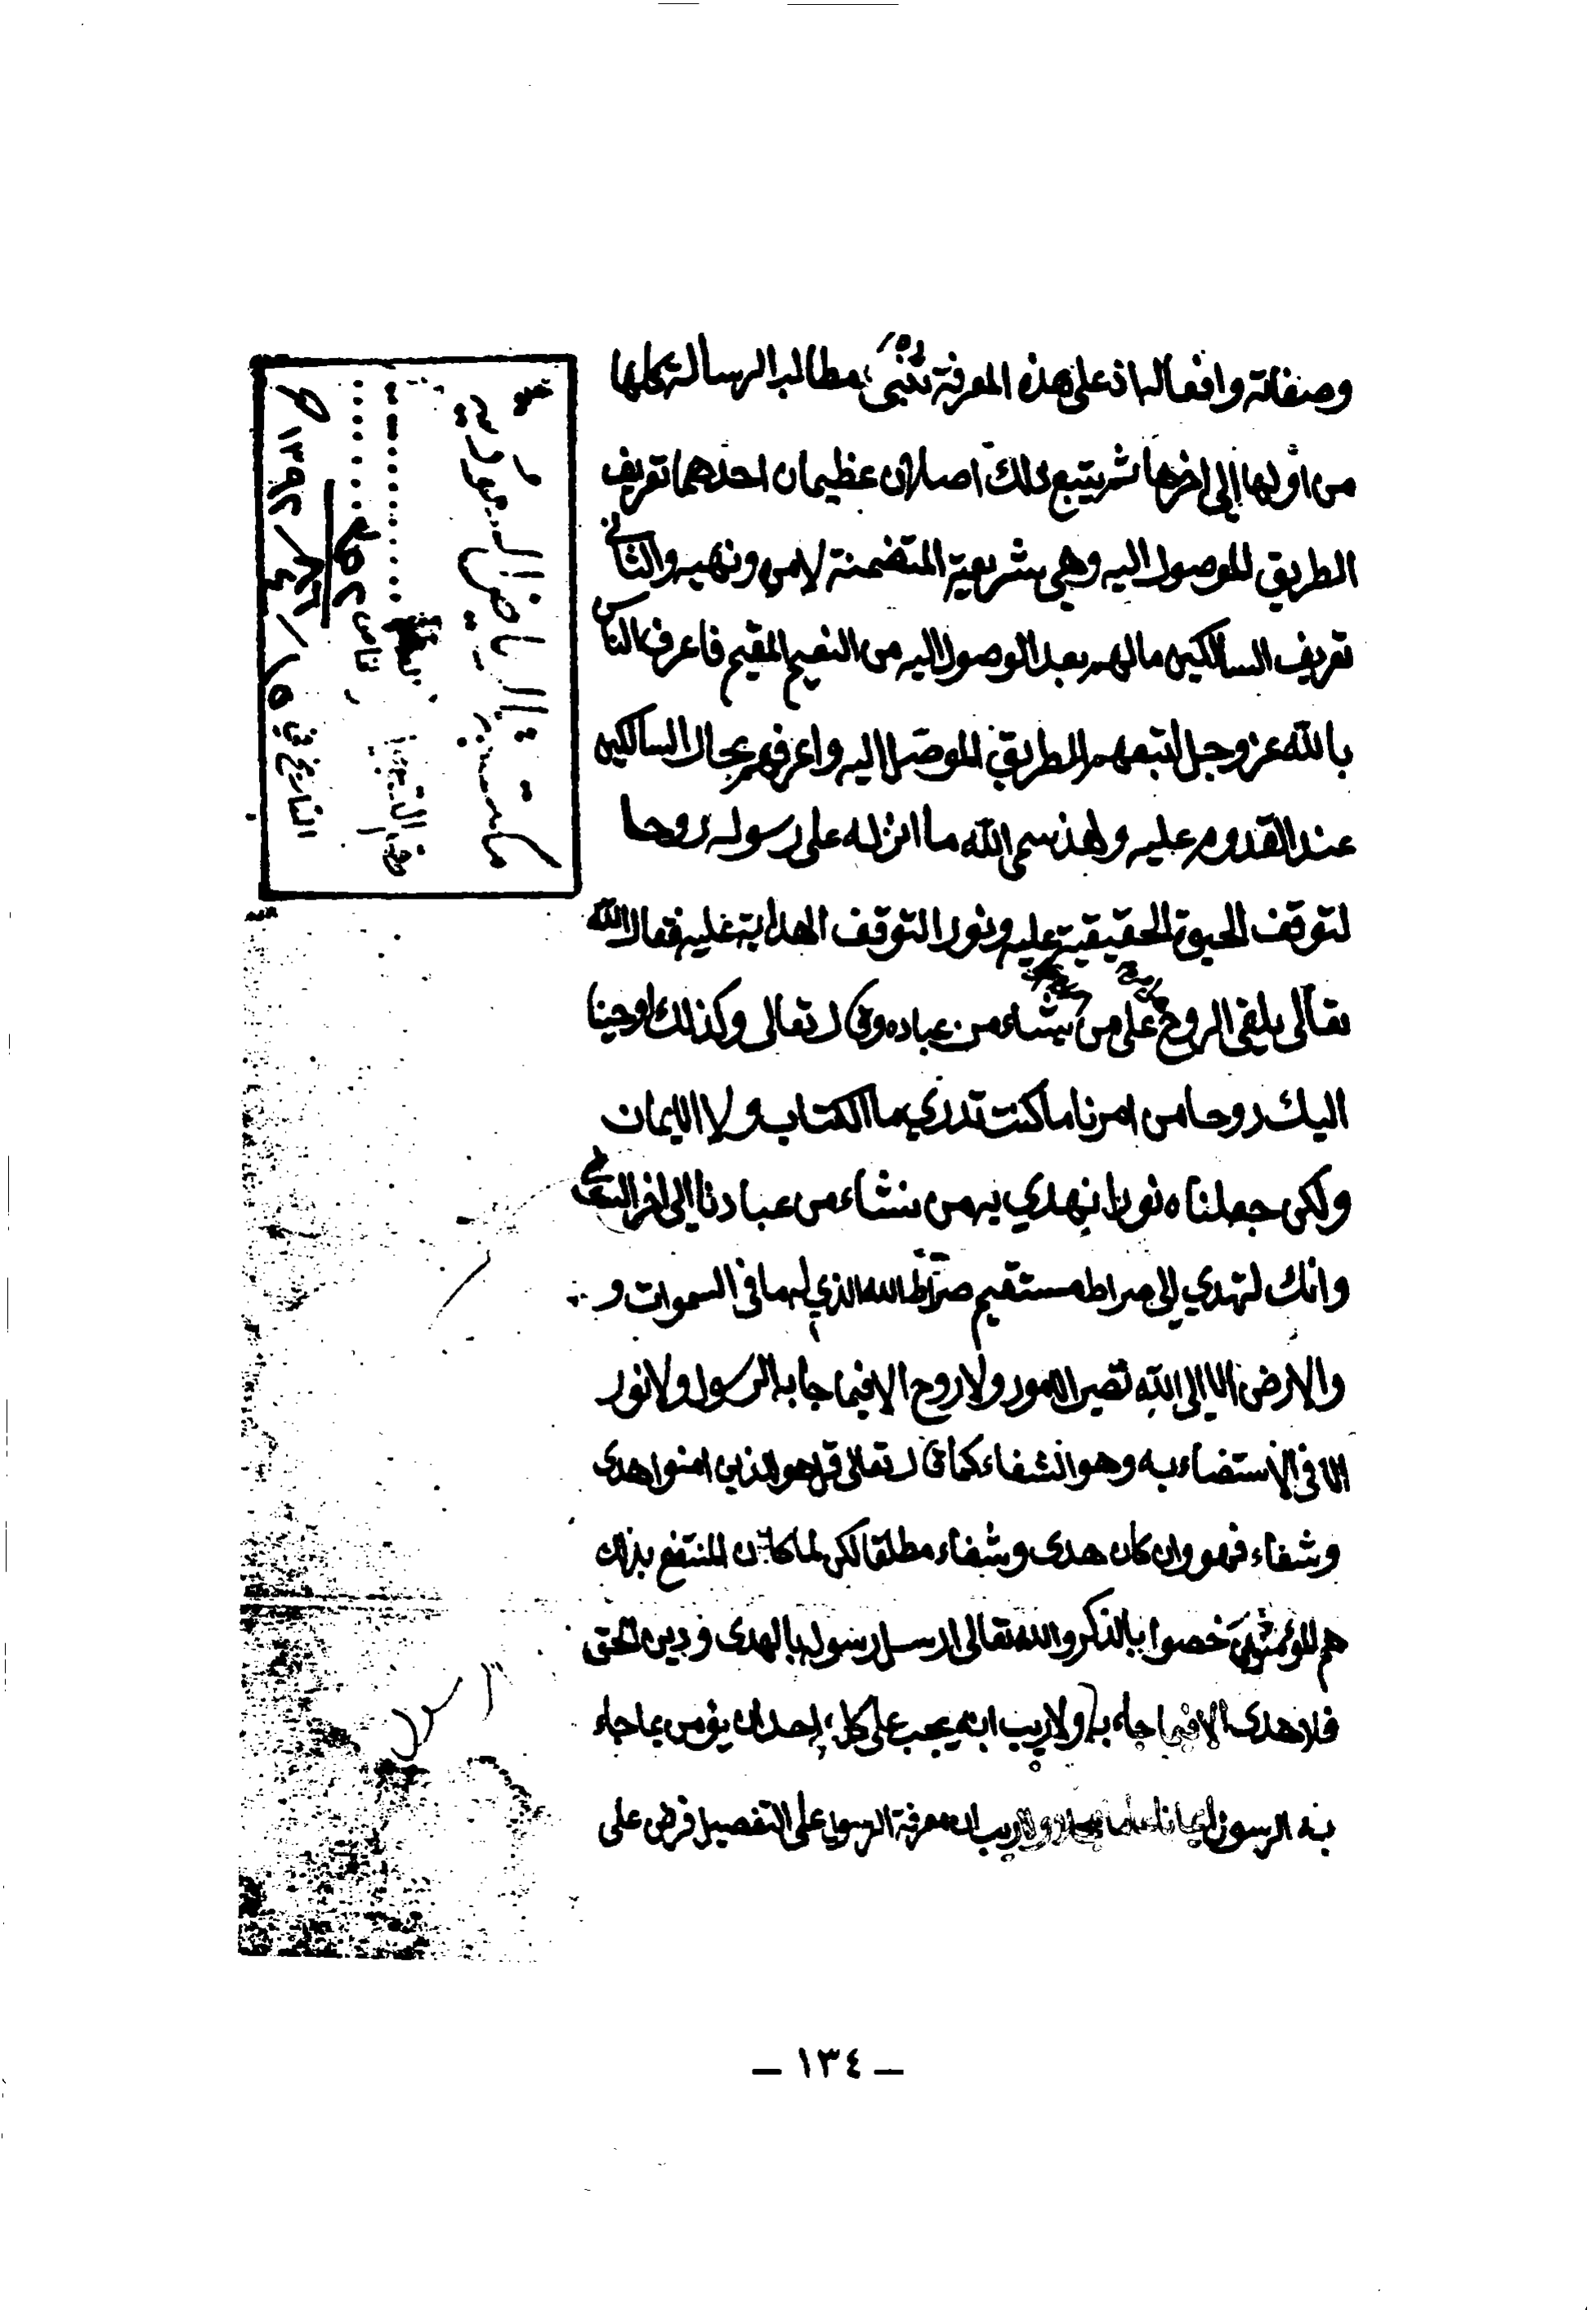 وصفاته وافعاله اذ على هذه المعرفة تبنى مطالب الرسالة كلها
من أولها إلى اخرها ثم يتبع ذلك اصلان عظيمان احدهما تعريف
الطريق الموصول اليه وهي شريعته المتضمنة لامره ونهيه والثاني
تعريف السالكين مالهم بعد الوصول اليه من النعيم المقيم فاعرف الناس
بالله عز وجل اتبعهم للطريق الموصل اليه واعرفهم بحال السالكين
عند القدوم عليه ولهذ سمى الله ما انزله على رسوله روحا
لتوقف الحيوة الحقيقية عليه ونورا لتوقف الهداية عليه فقال الله
تعالى يلقي الروح على من يشاء من عباده وقال تعالى وكذلك اوحينا
اليك روحا من امرنا ما كنت تدري ما الكتاب ولا الايمان
ولكن جعلناه نورا نهدي به من نشاء من عبادنا الى اخر
وانك لتهدي الى صراط مستقيم صراط الله الذي له ما في السموات و
والارض الا الى الله تصير الامور ولا روح الا فيما جا به الرسول ولا نور
الا في الاستضاءه به وهو الشفاء كما قال تعالى قل هو للذين امنوا هدى
وشفاء فهو وان كان هدى وشفاء مطلقا لكن لما كان المنتفع بذلك
هم المؤمنين خصوا بالذكر والله تعالى ارسل رسوله بالهدى ودين الحق
فلا هدى الا فيما جاء به ولا ريب انه يجب على كل احد ان يؤمن بما جاء
به الرسول ايمانا عاما مجملا ولا ريب ان معرفة الرسول على التفصيل فرض على
مكتبة الرياض السعودية
رقم التسجيل
التاريخ في ١٥ / ٤ / ١٣٩٢
– ١٣٤ –